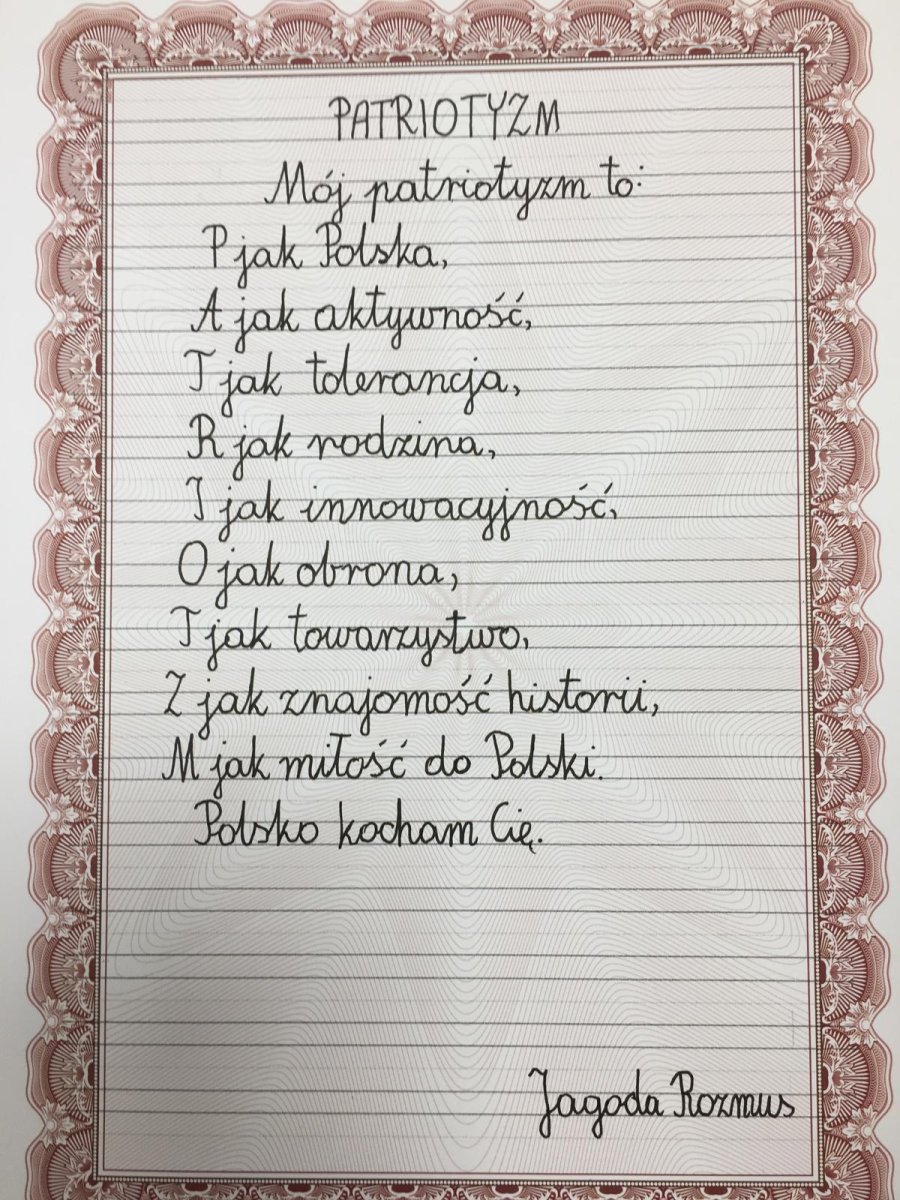 PATRIOTYZM
Mój patriotyzm to:
P jak Polska,
A jak aktywność,
T jak tolerancja,
R jak rodzina,
I jak innowacyjność,
O jak obrona,
T jak towarzystwo,
Z jak znajomość historii,
M jak miłość do Polski.
Polsko kocham Cię.
Jagoda Rozmus